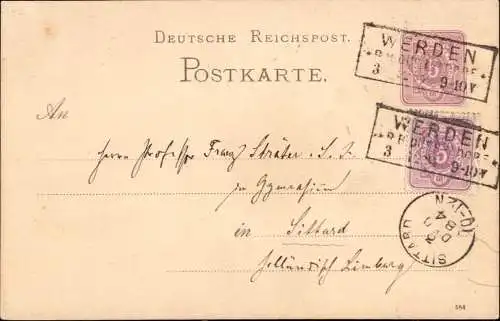 DEUTSCHE REICHSPOST.
POSTKARTE.
WERDEN
3 9-10V
WERDEN
3 9-10V
An
Herrn Professor Franz Sträter S. J.
im Gymnasium
in Sittard
holländisch Limburg
SITTARD